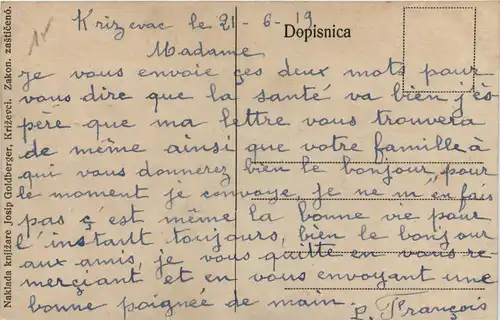 Krizevac le 21-6-19
Dopisnica
Madame
je vous envoie ces deux mots pour
vous dire que la santé va bien j'es
père que ma lettre vous trouvera
de même ainsi que votre famille à
qui vous donnerez bien le bonjour, pour
le moment je convoye, je ne m'en fais
pas ç'est même la bonne vie pour
l'instant toujours, bien le bonjour
aux amis, je vous quitte en vous re-
merçiant et en vous envoyant une
bonne poignée de main.
P. François
Naklada knjižare Josip Goldberger, Križevci. Zakon. zaštičeno.